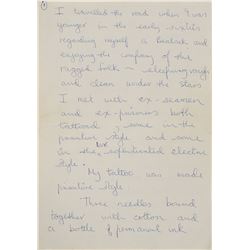 1
I travelled the road when I was
younger in the early sixties
regarding myself a beatnik and
enjoying the company of the
ragged folk – sleeping rough
and clean under the stars
I met with ex-seamen
and ex-prisoners both
tattooed, some in the
primitive style and some
in the sophisticated electric
style.
My tattoo was made
primitive style.
Three needles bound
together with cotton and
a bottle of permanent ink